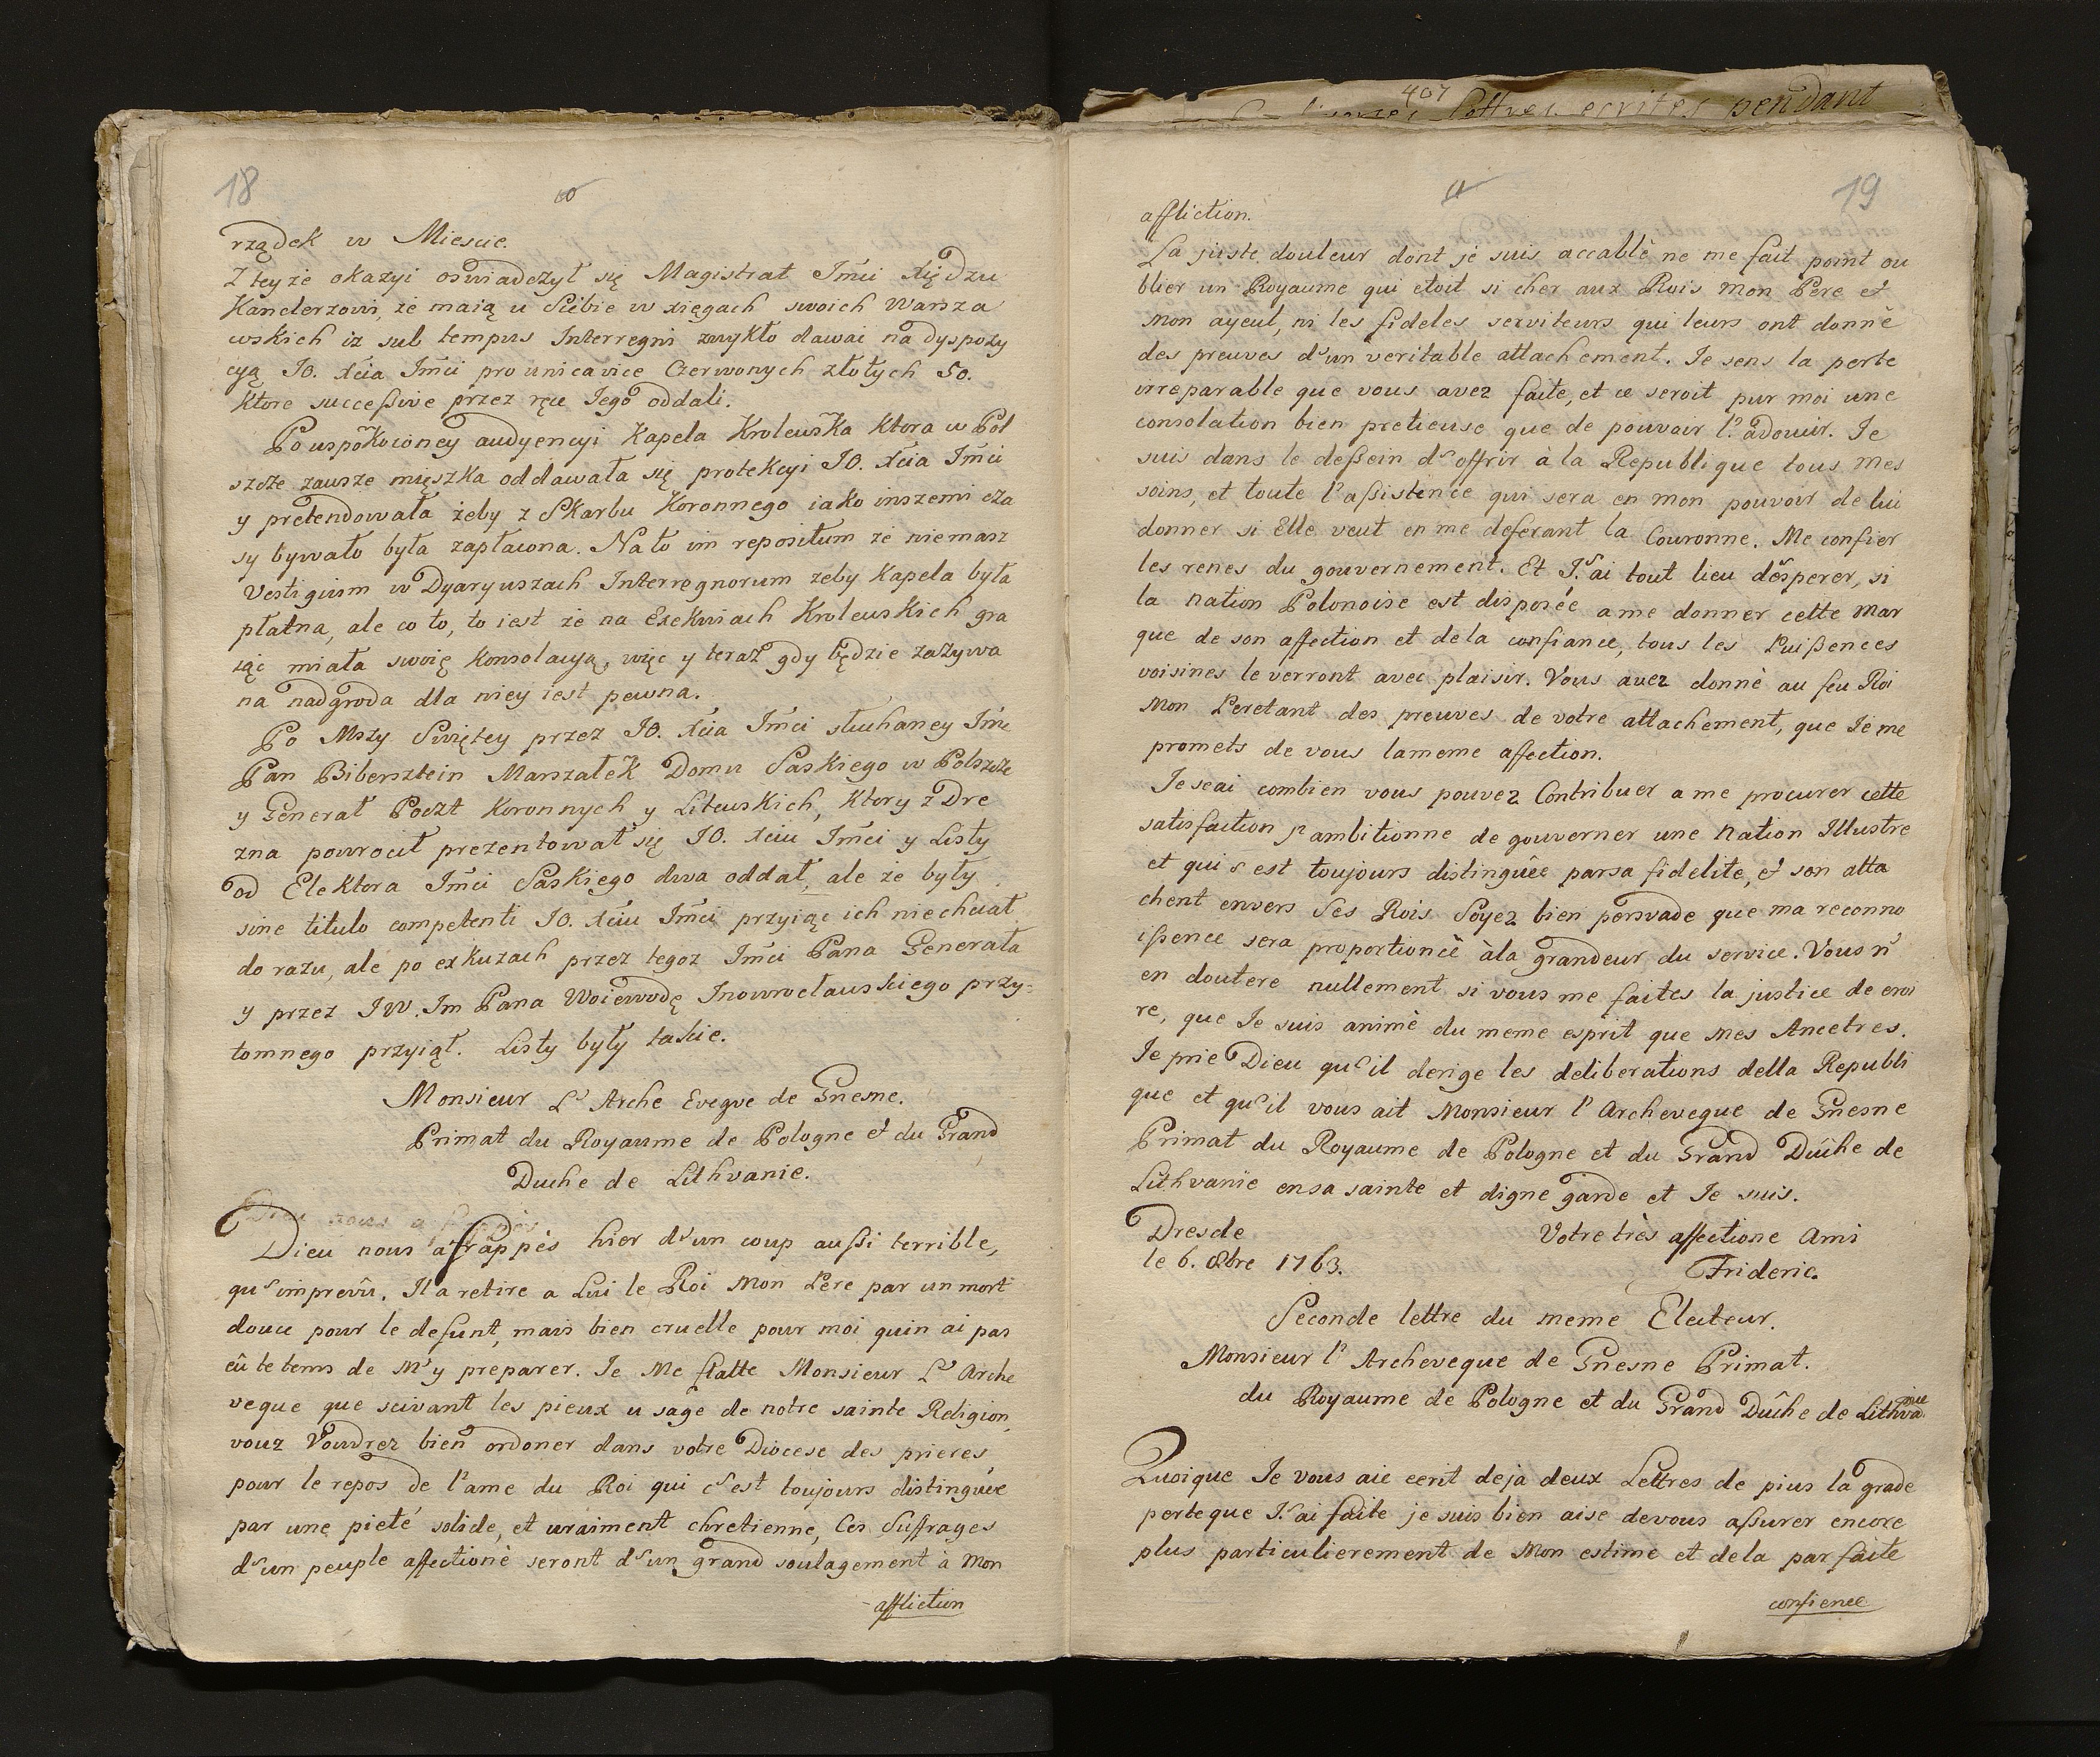 18
10
rządek w Miescie.
Z teyże okazyi oswiadczył się Magistrat Jmci Xiędzu
Kanclerzowi, że maią u Siebie w xięgach swoich Warsza
wskich iz sub tempus Interregni zwykło dawać na dyspozy
cyą JO. Xcia Jmci pro unica vice Czerwonych złotych 50.
Ktore successive przez ręce Jego oddali.
Po uspokoioney audyencyi Kapela Krolewska ktora w Pol
szcze zawsze mięszka oddawała się protekcyi JO. Xcia Jmci
y pretendowała żeby z Skarbu Koronnego iako inszemi cza
sy bywało była zapłacona. Na to im repositum że niemasz
Vestigium w Dyaryuszach Interregnorum żeby Kapela była
płatna, ale co to, to iest że na Exekwiach Krolewskich gra
iąc miała swoię Konsolacyą, więc y teraz gdy będzie zażywa
na nadgroda dla niey iest pewna.
Po Mszy Swiętey przez JO. Xcia Jmci słuchaney Jmc
Pan Bibersztein Marszałek Domu Saskiego w Polszcze
y Generał Poczt Koronnych y Litewskich, Ktory z Dre
zna powrocił prezentował się JO. Xciu Jmci y Listy
od Elektora Jmci Saskiego dwa oddał, ale że były
sine titulo competenti JO. Xciu Jmci przyiąc ich niechciał
do razu, ale po exkuzach przez tegoz Jmci Pana Generała
y przez JW. Jm Pana Woiewodę Inowrocławskiego przy=
tomnego przyiął. Listy były takie.
Monsieur L' Arche Eveque de Gnesne.
Primat du Royaume de Pologne et du Grand
Duche de Lithvanie.
Dieu nous a frappés hier d'un coup aussi terrible,
qu'imprevû. Il a retire a Lui le Roi Mon Pere par un mort
douce pour le defunt, mais bien cruelle pour moi quin ai pas
eû te tems de m'y preparer. Je Me flatte Monsieur L' Arche
veque que seivant les pieux usage de notre sainte Religion,
vouz Voudrez bien ordoner dans votre Diocese des prieres,
pour le repos de l'ame du Roi qui c'est toujours distinguée
par une pieté solide, et uraiment chretienne, Ces Suffrages
d'un peuple affectioné seront d'un grand soulagement à Mon
affliction
407
lettres ecrites pendant
11
19
affliction.
La juste douleur dont je suis accablè ne me fait point ou
blier un Royaume qui etoit si cher aux Rois Mon Pere et
Mon ayeul, ni les fideles serviteurs qui leurs ont donnè
des preuves d'un veritable attachement. Je sens la perte
irreparable que vous avez faite, et ce seroit pur moi une
consolation bien pretieuse que de pouvoir l'adoucir. Je
suis dans le dessein d'offrir à la Republique tous mes
soins, et toute l'assistence qui sera en mon pouvoir de lui
donner si Elle veut en me deferant la Couronne. Me confier
les renes du gouvernement. Et J'ai tout lieu d'esperer, si
la nation Polonoise est disposée a me donner cette mar
que de son affection et dela confiance, tous les Puissences
voisines le verront avec plaisir. Vous avez donnè au feu Roi
Mon Peretant des preuves de votre attachement, que Je me
promets de vous lameme affection.
Je seai combien vous pouvez Contribuer a me procurer cette
satisfaction j'ambitionne de gouverner une Nation Illustre
et qui s'est toujours distinguêe parsa fidelite, et son atta
chent envers Ses Rois. Soyez bien persvade que ma reconno
issence sera proportionêe àla grandeur du service. Vous n'
en doutere nullement si vous me faites la justice de croi
re, que Je suis animè du meme esprit que Mes Ancetres.
Je prie Dieu qu'il derige les deliberations della Republi
que et qu'il vous ait Monsieur l'Archeveque de Gnesne
Primat du Royaume de Pologne et du Grand Dûche de
Lithvanie ensa sainte et digne garde et Je suis.
Dresde Votre très affectione Ami
le 6. 8bre 1763. Frideric.
Seconde lettre du meme Electeur.
Monsieur l'Archeveque de Gnesne Primat.
du Royaume de Pologne et du Grand Dûche de Lithvanie
Quoique Je vous aie ecrit deja deux Lettres de pius la grade
perte que J'ai faite je suis bien aise devous assurer encore
plus particulierement de Mon estime et dela parfaite
confience